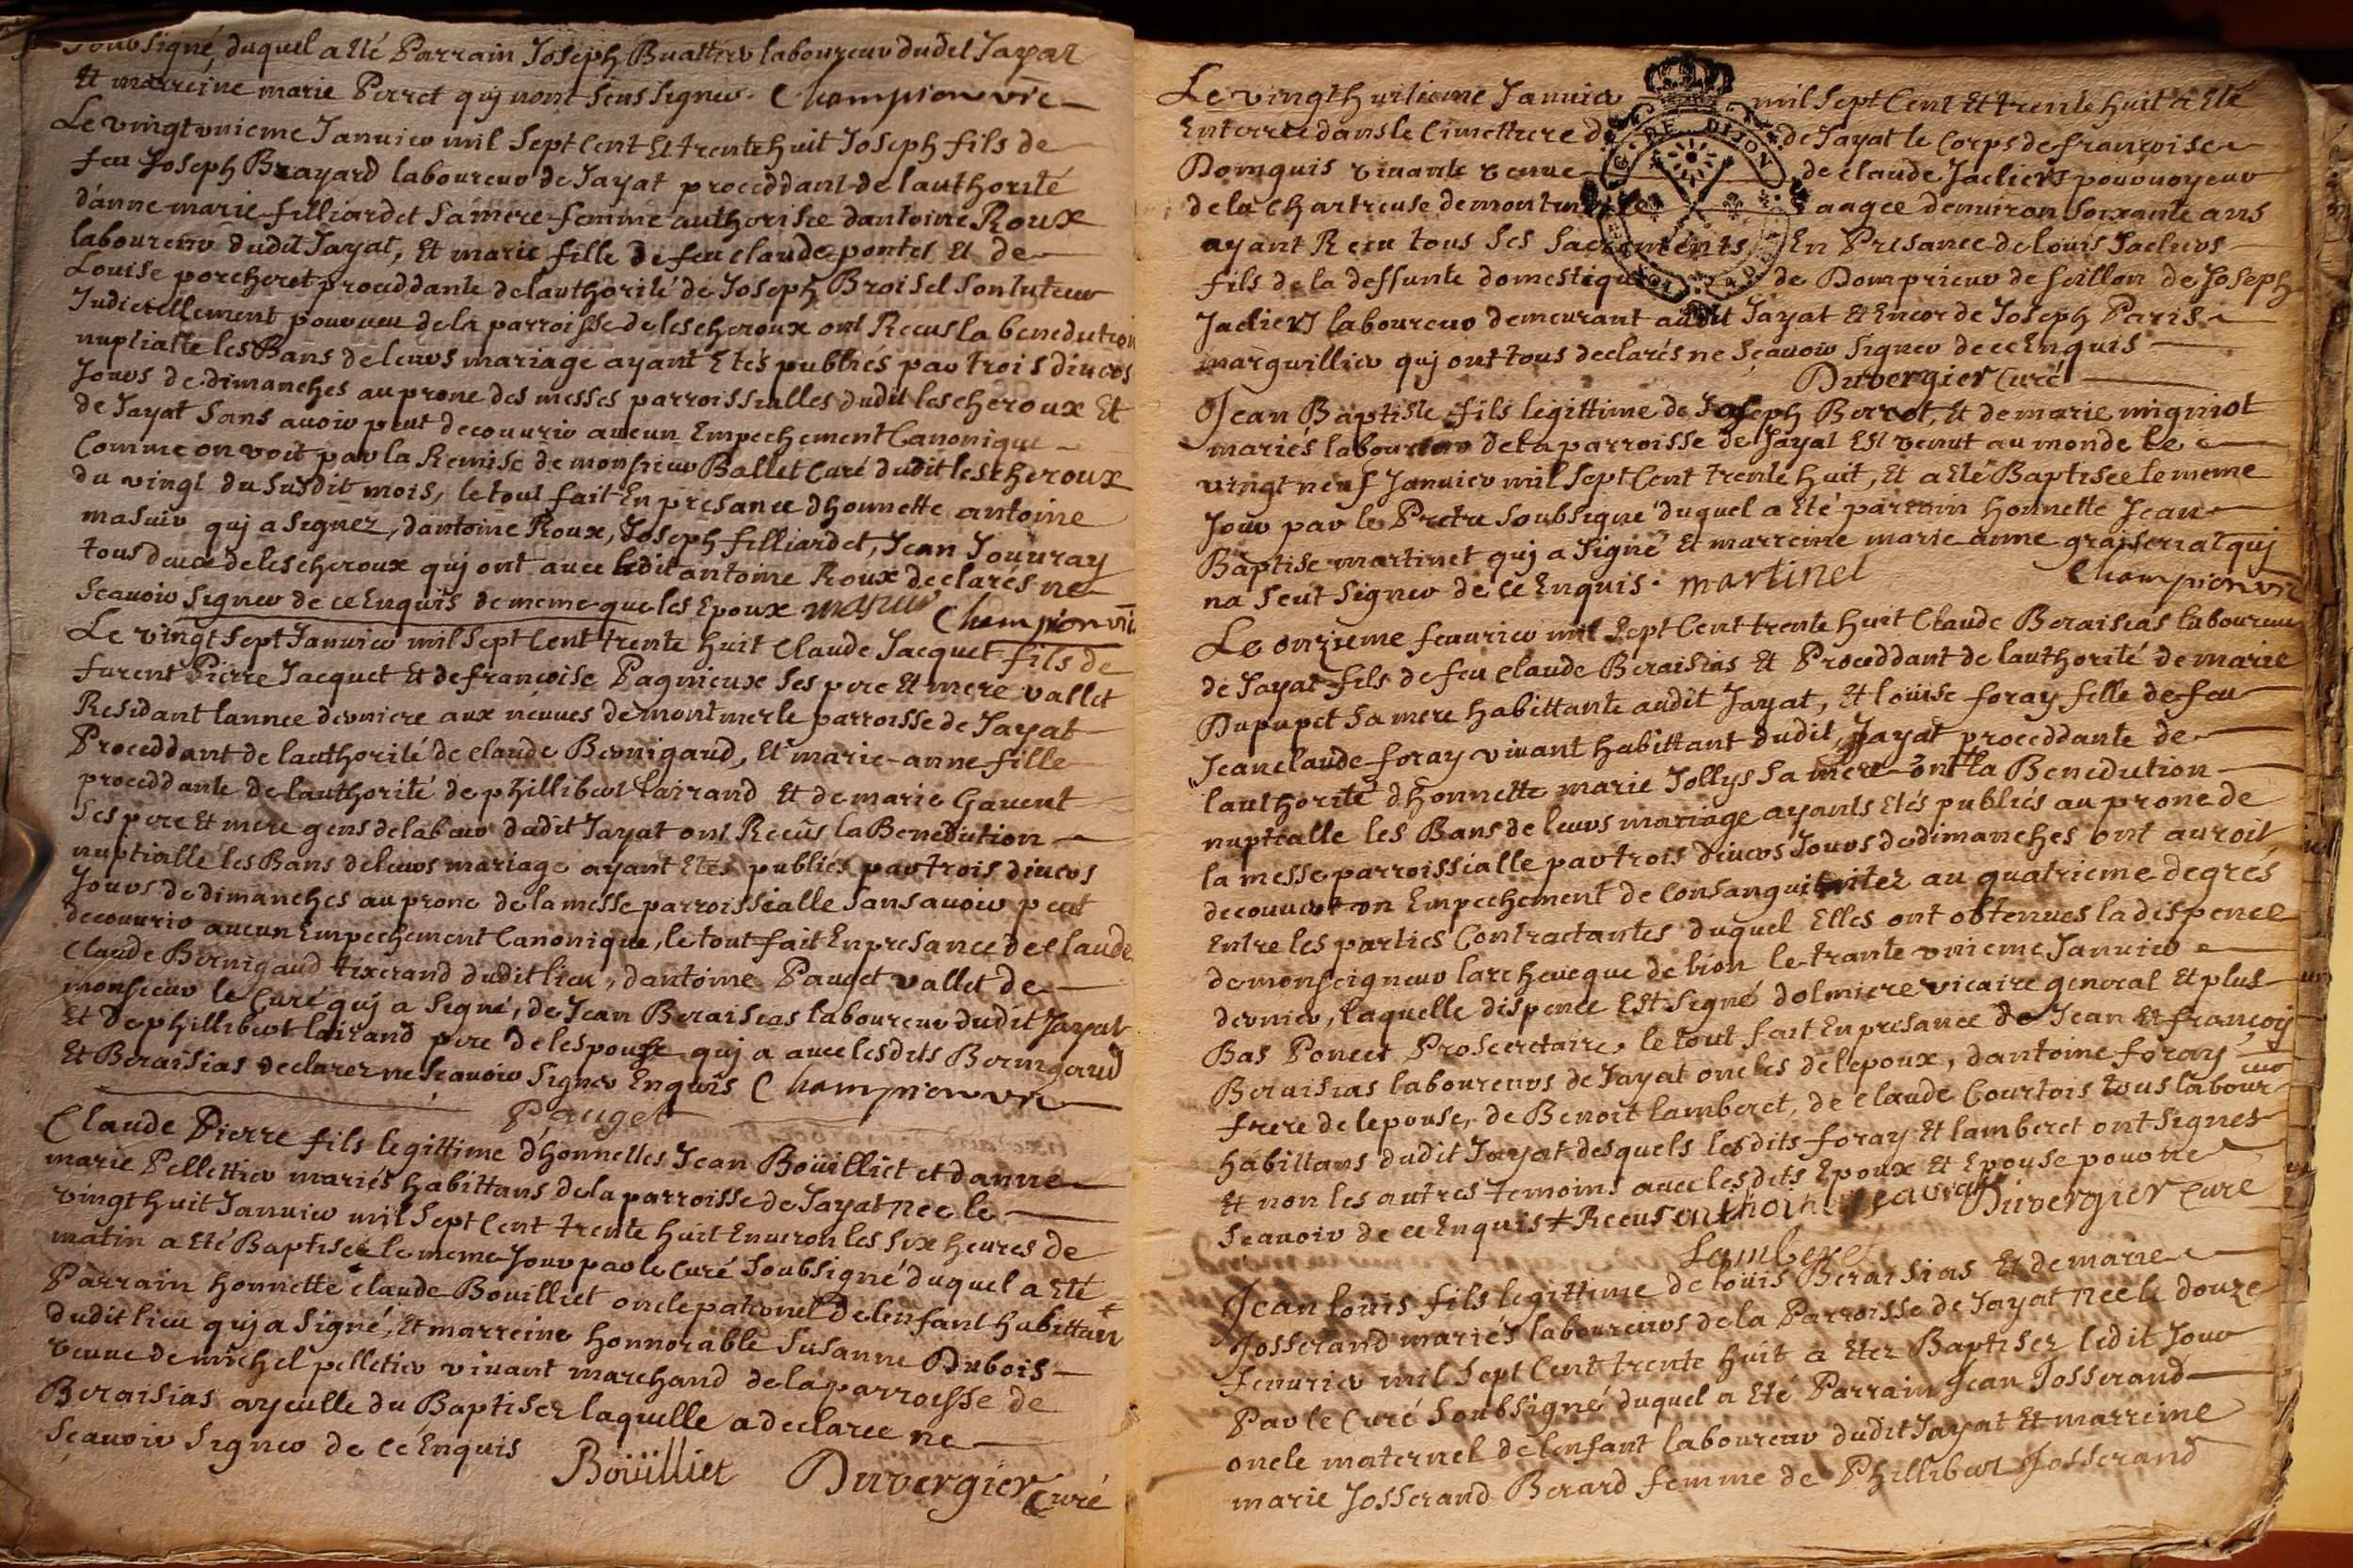 soubsigné, duquel a été Parrain Joseph Buattier laboureur dudit Jayat
Et marreine marie Perret quj nont sens signer. Championvic
Le vingt vnieme Januier mil Sept Cent Et trente huit Joseph fils de
feu Joseph Brayard laboureur de Jayat proceddant de lauthorité
d'anne marie filliardet sa mere femme authorisée dantoine Roux
laboureur dudit Jayat, Et marie fille de feu claude pontet Et de
Louise porcheret proceddante delauthorité de Joseph Broiset son tuteur
Judiciellement pouvueu de la parroisse de lescheroux ont Recus la benediction
nuptialle les Bans de leurs mariage ayant Etés publiés par trois diuers
Jours de dimanches au prone des messes parroissialles dudit lescheroux Et
de Jayat sans auoir peut decouurir aucun Empechement Canonique
Comme on voit par la Remise de monsieur Ballet Curé dudit lescheroux
du vingt du susdit mois, le tout fait En presance dhonnette antoine
masuir quj a signez, dantoine Roux, Joseph filliardet, Jean Jouuray
tous deux de lescheroux quj ont auec ledit antoine Roux declarés ne
scauoir signer de ce Enquis de meme que les Epoux masuir Championvic
Le vingt sept Januier mil sept Cent trente huit Claude Jacquet fils de
furent Pierre Jacquet Et de françoise Pagnieux ses pere Et mere vallet
Residant lannée derniere aux neuues demontmerle parroisse de Jayat
Proceddant de lauthorité de claude Bernigaud, Et marie-anne fille
proceddante delauthorité de phillibert lairand Et de marie Gauent
Ses pere Et mere gens delabeur dudit Jayat ont Recûs la Benediction
nuptialle les Bans deleurs mariage ayant Etés publiés par trois diuers
Jours de dimanches au prone de lamesse parroissialle sans auoir peut
decouurir aucun Empechement Canonique, le tout fait En presance de claude
Claude Bernigaud tixerand dudit lieu, dantoine Pauget vallet de
monsieur le Curé quj a signé, de Jean Beraisias laboureur dudit Jayat
Et de phillibert lairand pere de lespouse quj a auec lesdits Bernigaud
Et Beraisias declarer ne scauoir signer Enquis Championvic
Pauget
Claude Pierre fils legittime dhonnettes Jean Boüilliet et danne
marie Pellettier mariés habittans de la parroisse de Jayat née le
vingt huit Januier mil sept Cent trente huit Enuiron les six heures de
matin a été Baptisée le meme Jour par le Curé soubsigné duquel a été
Parrain honnette claude Bouilliet oncle paternel de lenfant habittant
dudit lieu quj a signé, Et marreine honnorable Susanne Dubois
veuue de michel pelletier viuant marchand de la parroisse de
Beraisias ayeulle du Baptisez laquelle a declaree ne
scauoir signer de ce Enquis Boüilliet Duvergier Curé
Le vingt huitieme Januier mil sept Cent Et trente huit a Eté
Enterrée dans le Cimettiere de Jayat le Corps de francoise
Domquis viuante veuue de claude Jacliers pouruoyeur
de la chartreuse de montmerle aagee denuiron soixante ans
ayant Recu tous ses sacrements, En Presance de louis Jacliers
fils de la deffunte domestique de Dom prieur de seillon de Joseph
Jacliers laboureur demeurant audit Jayat Et Encor de Joseph Paris
marguillier quj ont tous declarés ne sçauoir signer de ce Enquis
Duvergier Curé
G. DE DIJON
Jean Baptiste fils legittime de Joseph Berrot, Et de marie migniot
mariés laboureur dela parroisse de Jayat Est venut au monde le
vingt neuf Januier mil sept Cent trente huit, Et a Eté Baptisée le meme
Jour par le Pretre soubsigné duquel a Eté parrain honnette Jean
Baptise martinet quj a signé Et marreine marie anne graiserrat quj
na seut signer de ce Enquis. martinet Championvic
Le onzieme feurier mil sept Cent trente huit Claude Beraisias laboureur
de Jayat fils de feu claude Beraisias Et Proceddant de lauthorité de marie
Dupupet sa mere habittante audit Jayat, Et loüise foray fille de feu
Jeanclaude foray viuant habittant dudit Jayat proceddante de
lauthorité dhonnette marie Jollys sa mere ont la Benediction
nuptialle les Bans de leurs mariage ayants Etés publiés au prone de
la messe parroissialle par trois diuers Jours de dimanches ont auroit
decouuert un Empechement de consanguinitez au quatrieme degrés
Entre les parties Contractantes duquel Elles ont obtenues la dispence
de monseigneur larcheueque de lion le trante vnieme Januier
dernier, laquelle dispence Est signé dolmiere vicaire general Et plus
Bas Poncet Prosecretaire, le tout fait En presance de Jean Et françoij
Beraisias laboureurs de Jayat oncles de lepoux, dantoine foray
frere de lepouse, de Benoit lamberet, de claude Courtois tous laboureur
habittans dudit Jayat desquels lesdits foray Et lamberet ont signes
Et non les autres temoins auec lesdits Epoux Et Epouse pour ne
scauoir de ce Enquis + Recus anthoine Duvergier Curé
Lamberet
Jean loüis fils legittime de loüis Beraisias Et de marie
Josserand mariés laboureurs de la Parroisse de Jayat née le douze
feurier mil sept Cent trente huit a etez Baptisez ledit Jour
Par le Curé soubsigné duquel a été Parrain Jean Josserand
oncle maternel de lenfant laboureur dudit Jayat Et marreine
marie Josserand Berard femme de Phillibert Josserand